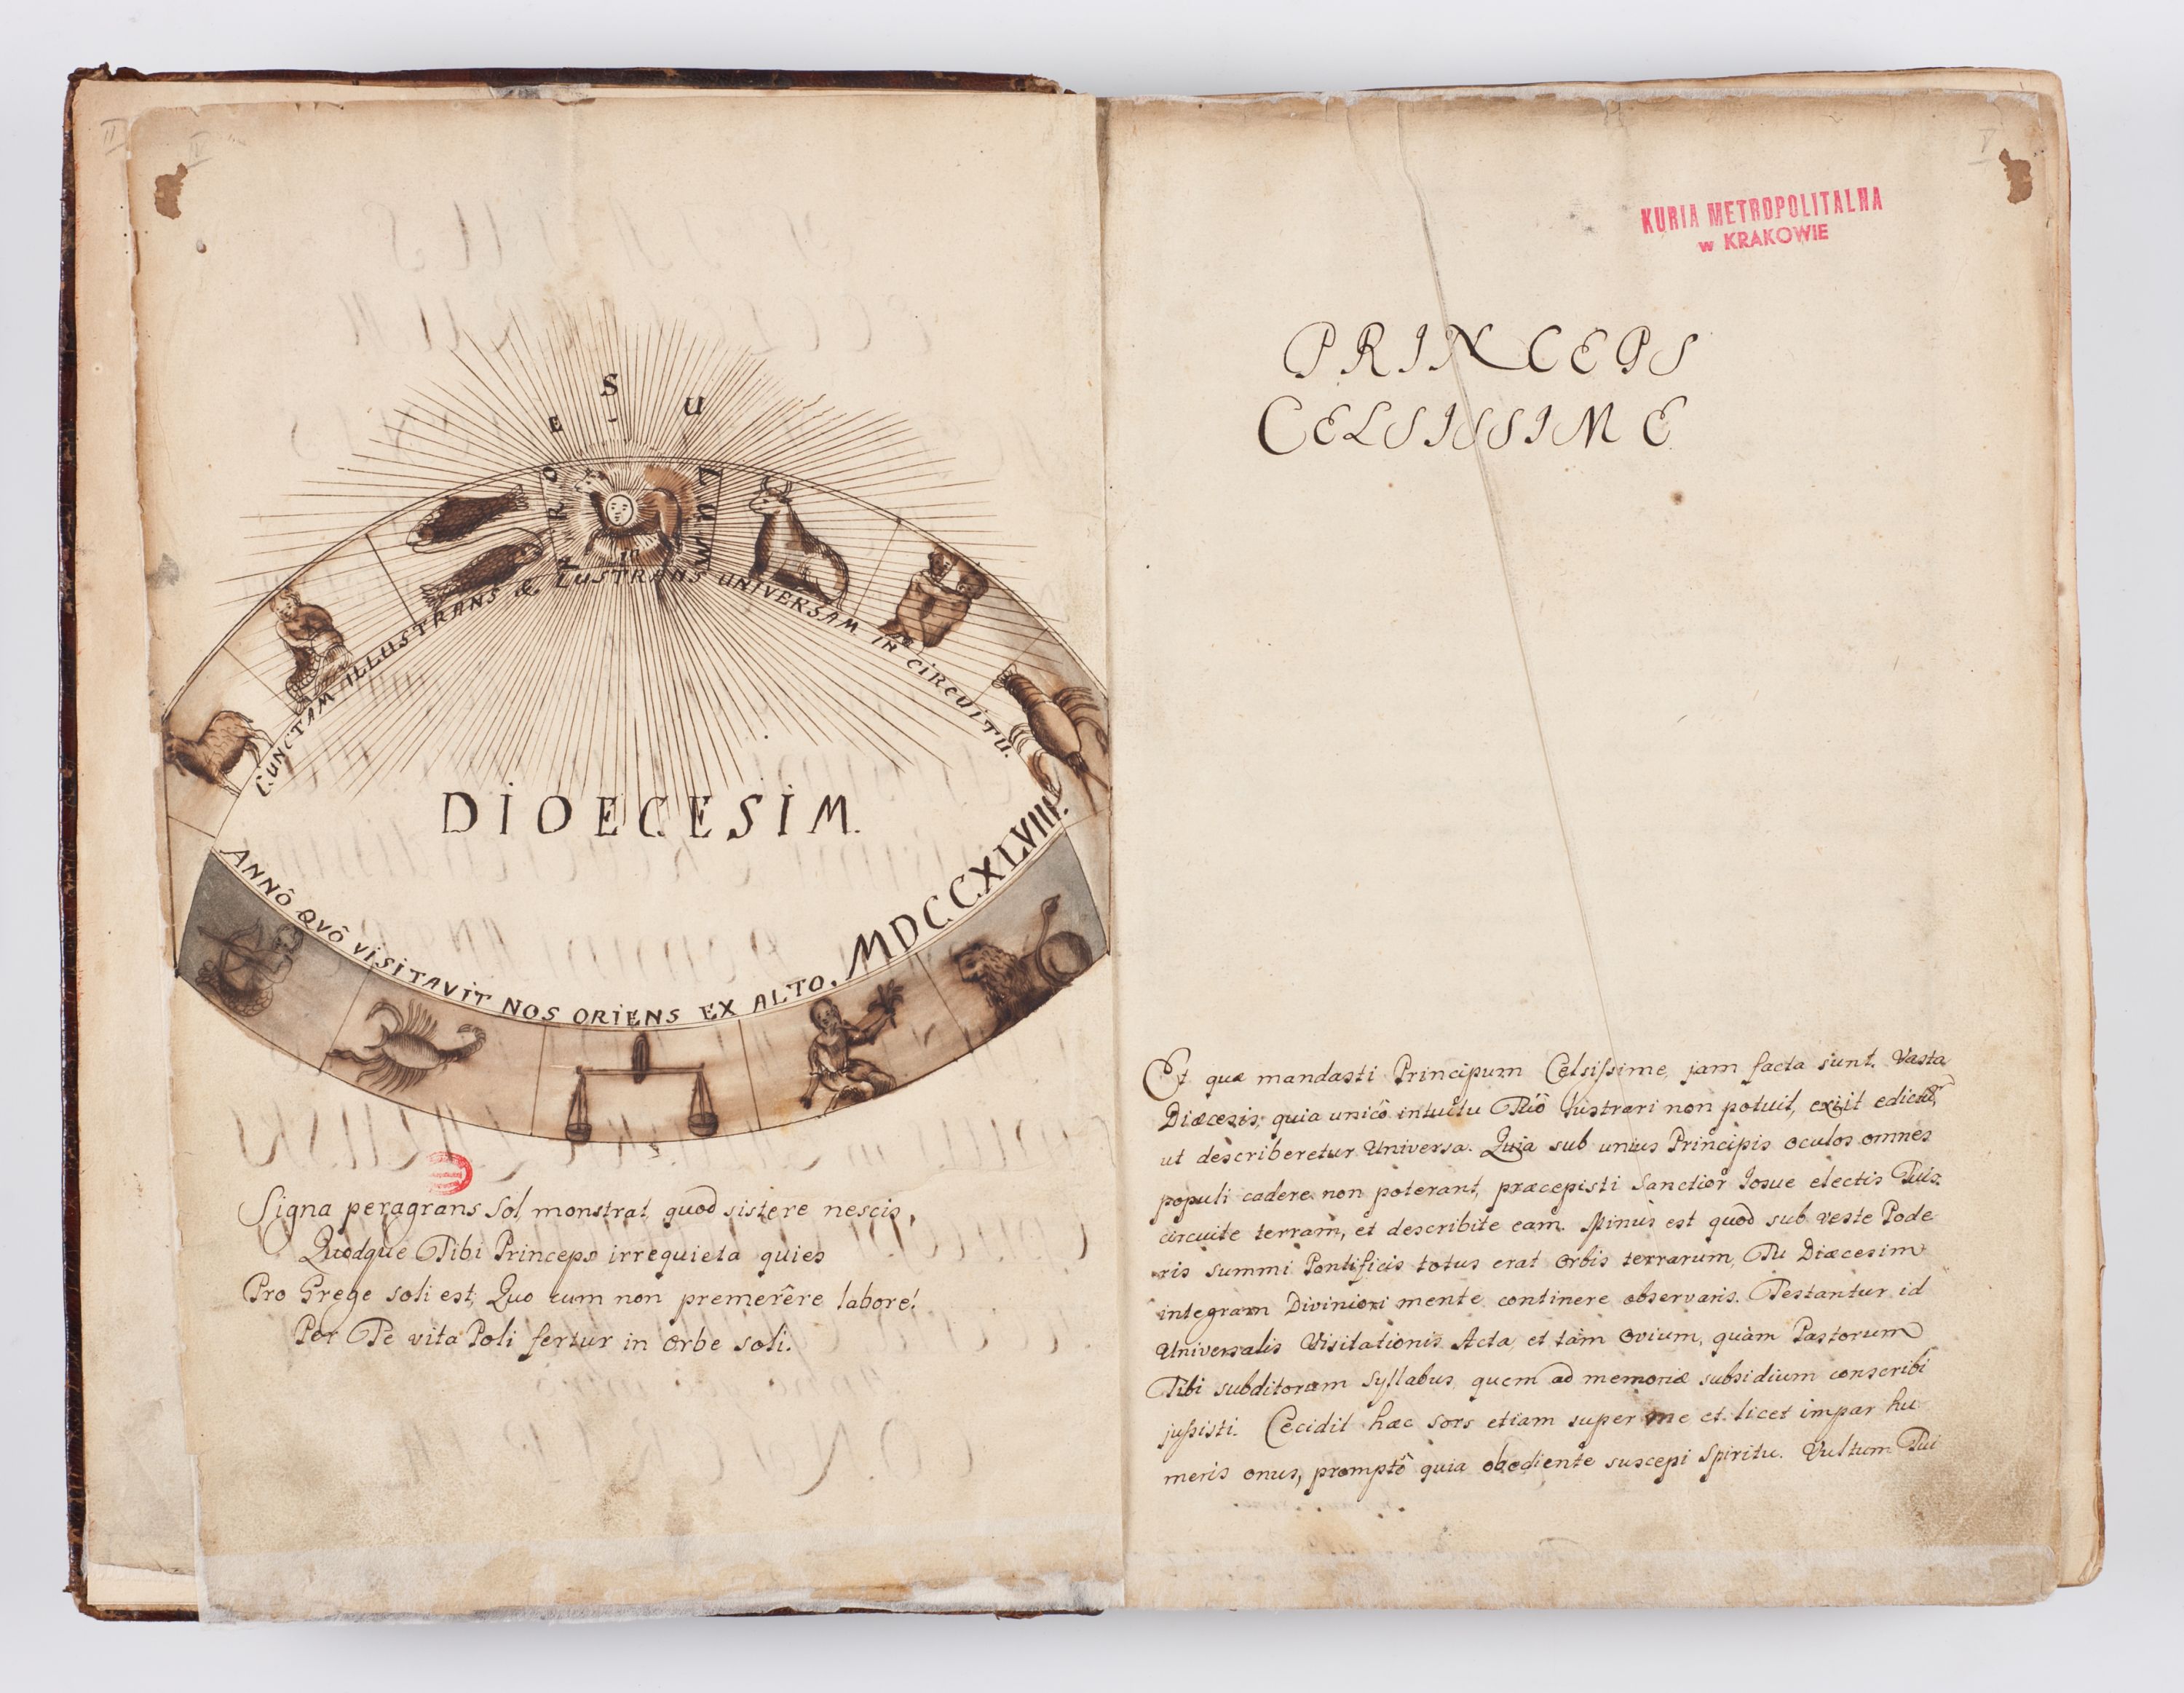 IV
V
KURIA METROPOLITALNA
w KRAKOWIE
ROESUZUM
CUNCTAM ILLUSTRANS & LUSTRANS UNIVERSAM IN CIRCUITU.
DIOECESIM.
ANNÔ QVÔ VISITAVIT NOS ORIENS EX ALTO, MDCCXLVIII.
Signa peragrans Sol, monstrat, quod sistere nescis,
Quodque Tibi Princeps irrequieta quies
Pro Grege soli est, Quo cum non premerêre labore!
Per Te vita Poli fertur in Orbe soli.
PRINCEPS
CELSISSIME
Et quæ mandasti Principum Celsiſsime, jam facta sunt. Vasta
Diæcesis, quia unicô intuitu Tuô lustrari non potuit, exiit edictũ,
ut describeretur Universa. Quia sub unius Principis oculos omnes
populi cadere non poterant, præcepisti Sanctior Iosue electis Tuis:
circuite terram, et describite eam. Minus est quod sub veste Pode
ris summi Pontificis totus erat Orbis terrarum, Tu Diæcesim
integram Diviniori mente continere observaris. Testantur id
Universalis Visitationis Acta, et tàm Ovium, quàm Pastorum
Tibi subditorum Syllabus, quem ad memoriæ subsidium conscribi
juſsisti. Cecidit hæc sors etiam super me et licet impar hu
meris onus, promptô quia obediente suscepi Spiritu. Vultum Tui